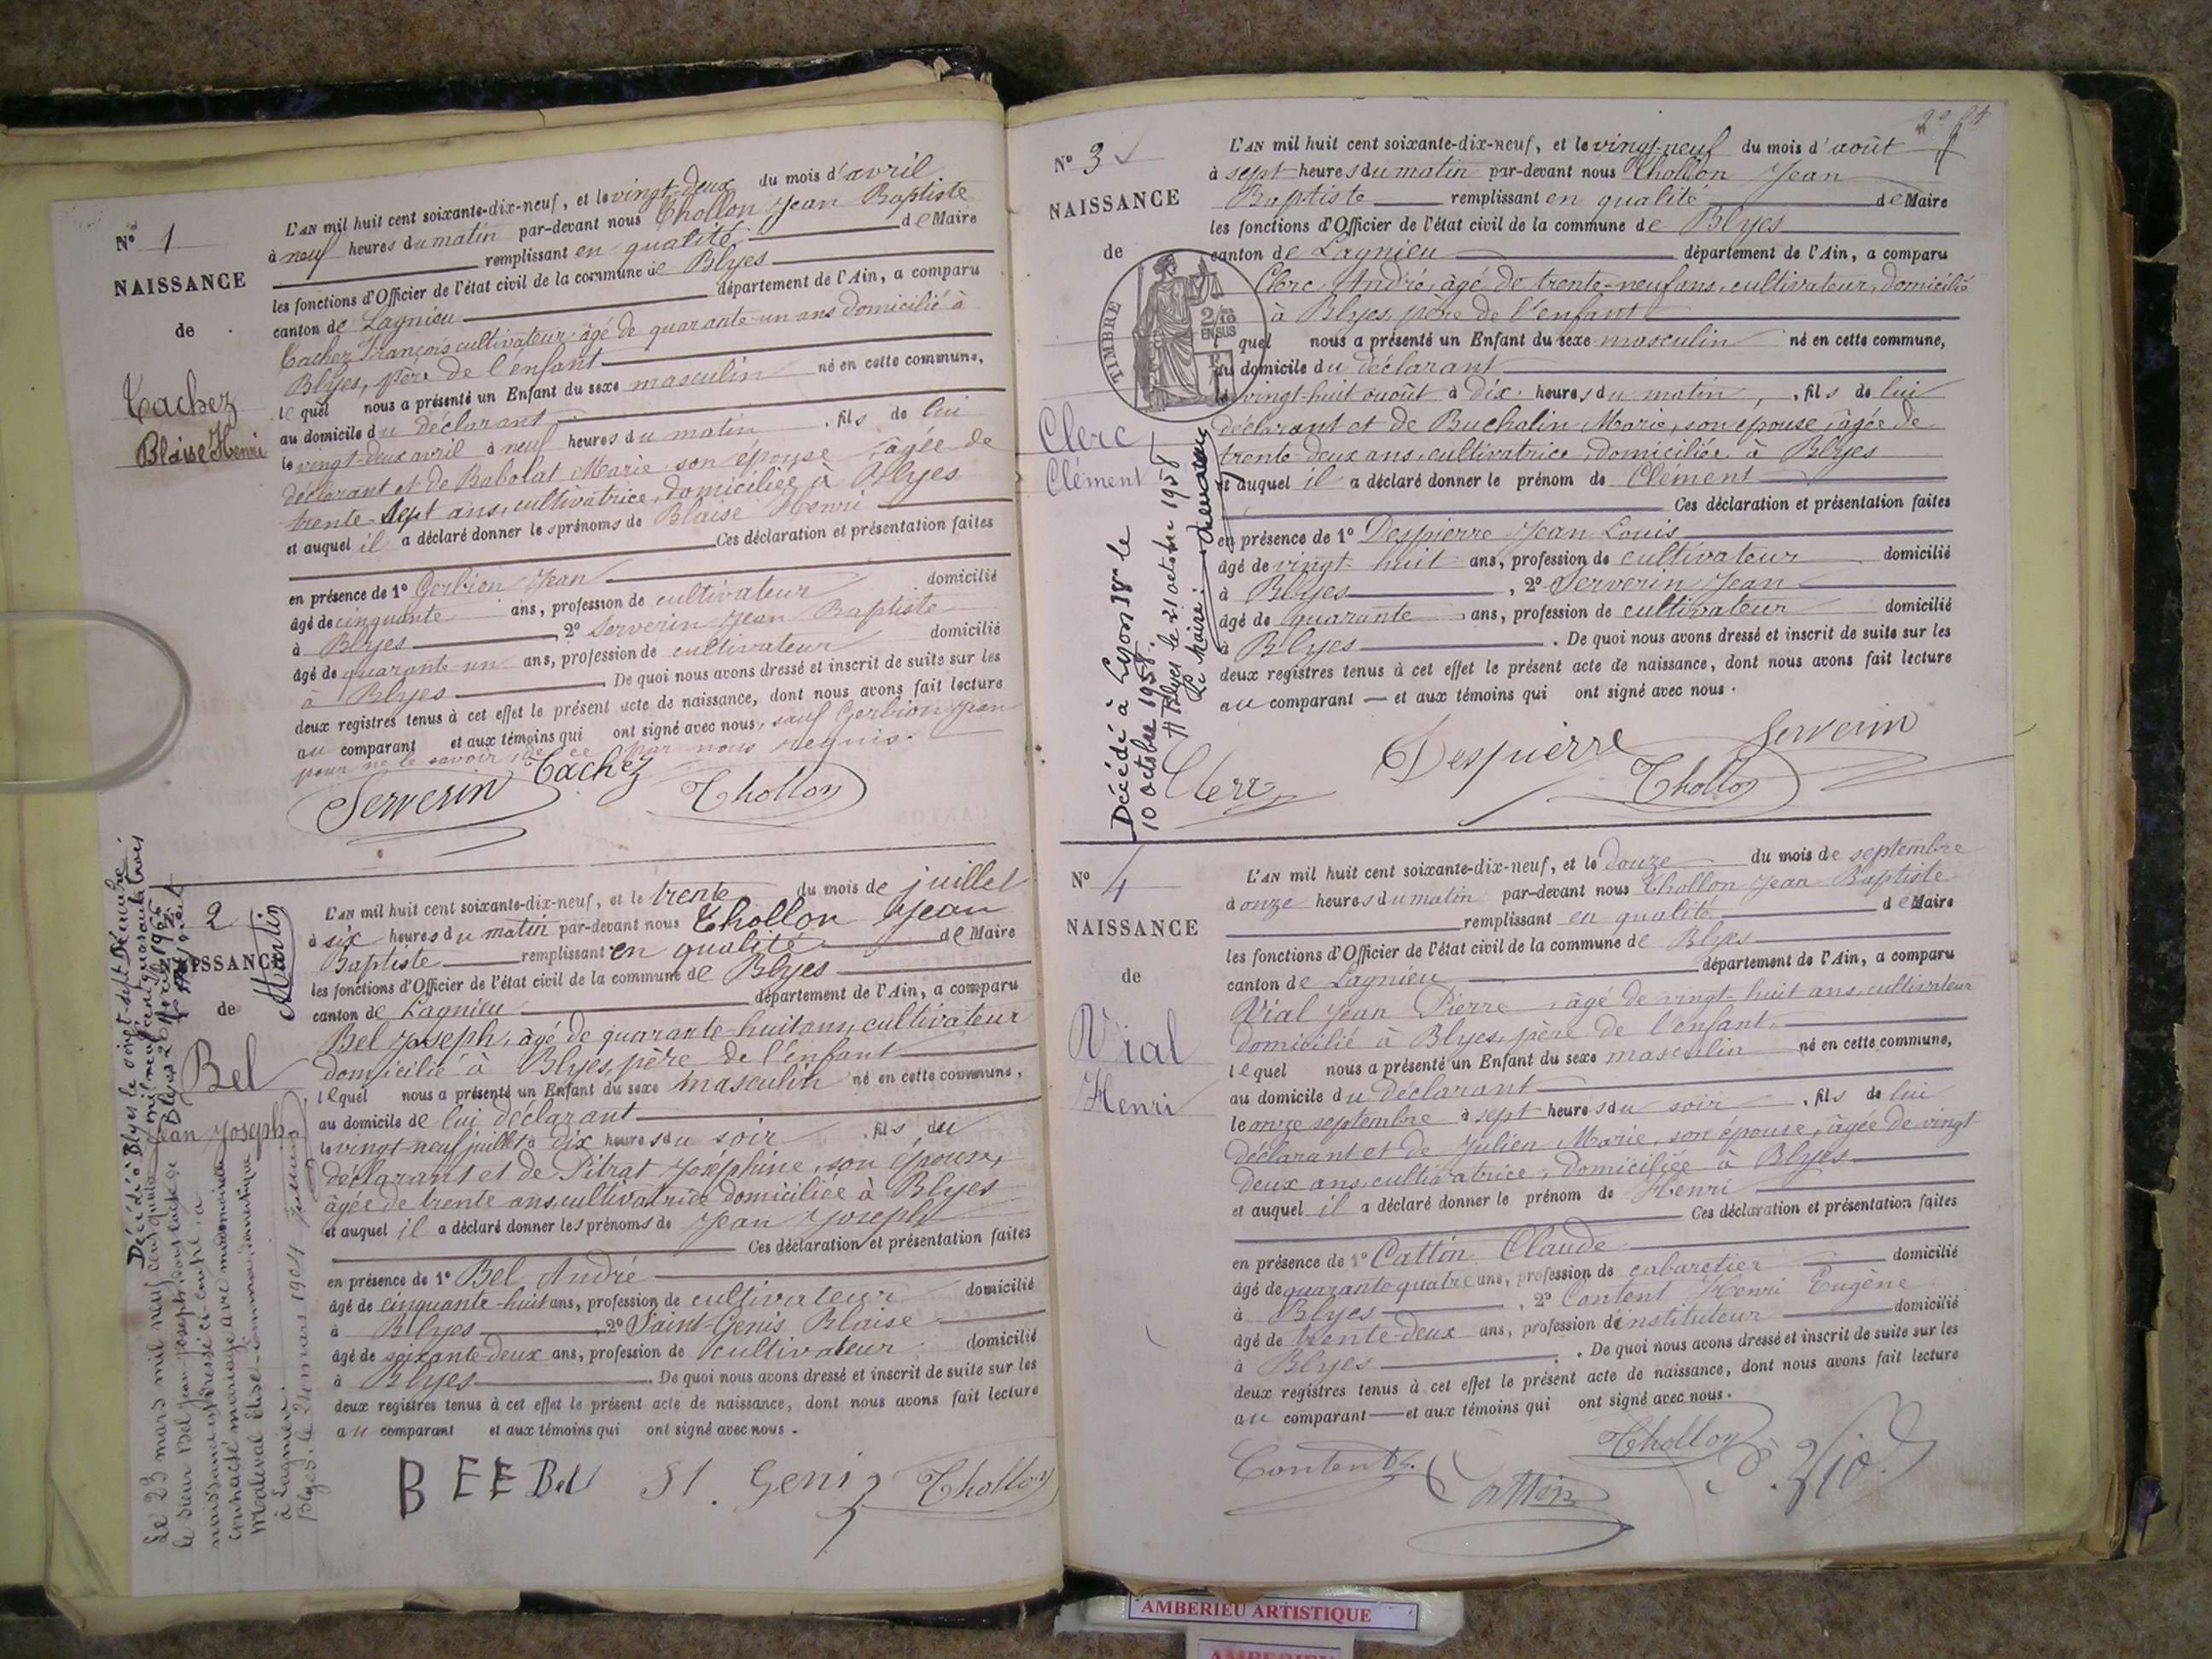 N° 1
NAISSANCE
de
Cachez
Blaise Henri
L'AN mil huit cent soixante-dix-neuf, et le vingt-deux du mois d'avril
à neuf heures du matin par-devant nous Thollon Jean Baptiste
remplissant en qualité de Maire
les fonctions d'Officier de l'état civil de la commune de Blyes
canton de Lagnieu département de l'Ain, a comparu
Cachez François cultivateur âgé de quarante-un ans domicilié à
Blyes, père de l'enfant
lequel nous a présenté un Enfant du sexe masculin né en cette commune,
au domicile du déclarant
le vingt-deux avril à neuf heures du matin, fils de lui
déclarant et de Babolat Marie son épouse, âgée de
trente-sept ans, cultivatrice, domiciliée à Blyes
et auquel il a déclaré donner les prénoms de Blaise Henri
Ces déclaration et présentation faites
en présence de 1° Gerbion Jean
âgé de cinquante ans, profession de cultivateur domicilié
à Blyes, 2° Serverin Jean Baptiste
âgé de quarante-un ans, profession de cultivateur domicilié
à Blyes. De quoi nous avons dressé et inscrit de suite sur les
deux registres tenus à cet effet le présent acte de naissance, dont nous avons fait lecture
au comparant et aux témoins qui ont signé avec nous, sauf Gerbion Jean
pour ne le savoir de ce par nous requis.
Serverin Cachez Thollon
2
NAISSANCE
de
Bel
Jean Joseph
Martin
Décédé à Blyes le vingt-sept Décembre
mil neuf cent quarante trois
Blyes
Le 23 mars mil neuf cent quatre
le sieur Bel Jean-Joseph, dont l'acte de
naissance est dressé ci-contre a
contracté mariage avec mademoiselle
Maleval Elise
à Lagnieu.
Blyes, le 24 mars 1904
L'AN mil huit cent soixante-dix-neuf, et le trente du mois de juillet
à six heures du matin par-devant nous Thollon Jean
Baptiste remplissant en qualité de Maire
les fonctions d'Officier de l'état civil de la commune de Blyes
canton de Lagnieu département de l'Ain, a comparu
Bel Joseph, âgé de quarante-huit ans, cultivateur
domicilié à Blyes, père de l'enfant
lequel nous a présenté un Enfant du sexe masculin né en cette commune,
au domicile de lui déclarant
le vingt-neuf juillet à dix heures du soir, fils du
déclarant et de Pitrat Joséphine, son épouse,
âgée de trente ans, cultivatrice domiciliée à Blyes
et auquel il a déclaré donner les prénoms de Jean Joseph
Ces déclaration et présentation faites
en présence de 1° Bel André
âgé de cinquante-huit ans, profession de cultivateur domicilié
à Blyes, 2° Saint-Genis Blaise
âgé de soixante-deux ans, profession de cultivateur domicilié
à Blyes. De quoi nous avons dressé et inscrit de suite sur les
deux registres tenus à cet effet le présent acte de naissance, dont nous avons fait lecture
au comparant et aux témoins qui ont signé avec nous.
B E E Bel St. Genis Thollon
N° 3
NAISSANCE
de
TIMBRE
2/10
EN SUS
Clerc
Clément
Décédé à Lyon le
10 octobre 1958.
Blyes le 21 octobre 1958
Le Maire:
L'AN mil huit cent soixante-dix-neuf, et le vingt-neuf du mois d'août
à sept heures du matin par-devant nous Thollon Jean
Baptiste remplissant en qualité de Maire
les fonctions d'Officier de l'état civil de la commune de Blyes
canton de Lagnieu département de l'Ain, a comparu
Clerc André, âgé de trente-neuf ans, cultivateur, domicilié
à Blyes, père de l'enfant
lequel nous a présenté un Enfant du sexe masculin né en cette commune,
au domicile du déclarant
le vingt-huit août à dix heures du matin, fils de lui
déclarant et de Buchalin Marie, son épouse, âgée de
trente-deux ans, cultivatrice, domiciliée à Blyes
et auquel il a déclaré donner le prénom de Clément
Ces déclaration et présentation faites
en présence de 1° Despierre Jean Louis
âgé de vingt huit ans, profession de cultivateur domicilié
à Blyes, 2° Serverin Jean
âgé de quarante ans, profession de cultivateur domicilié
à Blyes. De quoi nous avons dressé et inscrit de suite sur les
deux registres tenus à cet effet le présent acte de naissance, dont nous avons fait lecture
au comparant — et aux témoins qui ont signé avec nous.
Clerc Despierre Serverin
Thollon
N° 4
NAISSANCE
de
Vial
Henri
L'AN mil huit cent soixante-dix-neuf, et le douze du mois de septembre
à onze heures du matin par-devant nous Thollon Jean Baptiste
remplissant en qualité de Maire
les fonctions d'Officier de l'état civil de la commune de Blyes
canton de Lagnieu département de l'Ain, a comparu
Vial Jean Pierre, âgé de vingt-huit ans, cultivateur
domicilié à Blyes, père de l'enfant,
lequel nous a présenté un Enfant du sexe masculin né en cette commune,
au domicile du déclarant
le onze septembre à sept heures du soir, fils de lui
déclarant et de Julien Marie, son épouse, âgée de vingt-
deux ans, cultivatrice, domiciliée à Blyes
et auquel il a déclaré donner le prénom de Henri
Ces déclaration et présentation faites
en présence de 1° Cattin Claude
âgé de quarante quatre ans, profession de cabaretier domicilié
à Blyes, 2° Content Henri Eugène
âgé de trente-deux ans, profession d'instituteur domicilié
à Blyes. De quoi nous avons dressé et inscrit de suite sur les
deux registres tenus à cet effet le présent acte de naissance, dont nous avons fait lecture
au comparant — et aux témoins qui ont signé avec nous.
Content Cattin Thollon Vial
AMBERIEU ARTISTIQUE
AMBERIEU